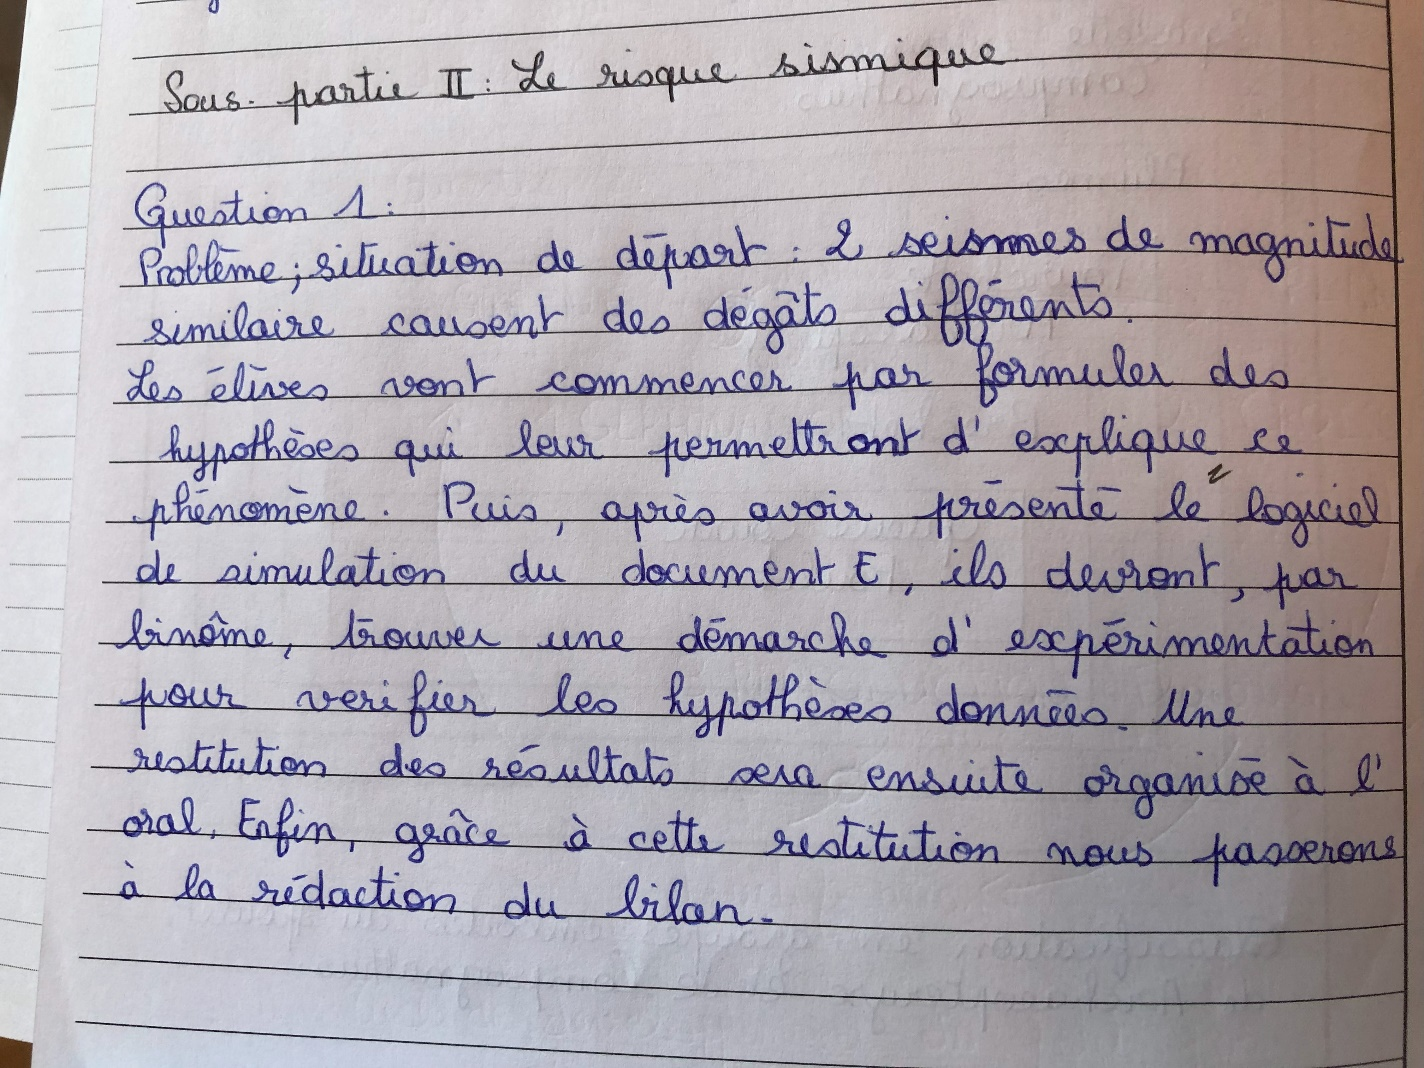 Sous-partie II: Le risque sismique
Question 1:
Problème; situation de départ : 2 seismes de magnitude
similaire causent des dégâts différents.
Les élèves vont commencer par formuler des
hypothèses qui leur permettront d'explique ce
phénomène. Puis, après avoir présenté le logiciel
de simulation du document E, ils devront, par
binôme, trouver une démarche d'expérimentation
pour verifier les hypothèses données. Une
restitution des résultats sera ensuite organisé à l'
oral. Enfin, grâce à cette restitution nous passerons
à la rédaction du bilan.